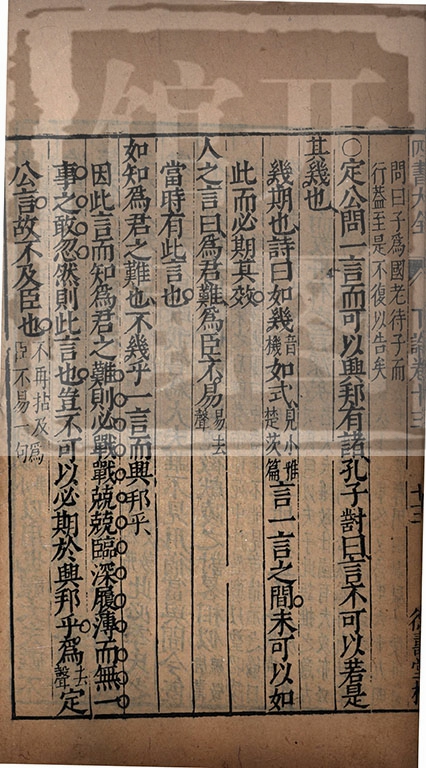 四書大全 下論卷十三 七三
問曰子爲國老待子而
行葢至是不復以告矣
○定公問一言而可以興邦有諸孔子對曰言不可以若是
其幾也
幾期也詩曰如幾音機如式見小雅楚茨篇言一言之間未可以如
此而必期其效
人之言曰爲君難爲臣不易易去聲
當時有此言也
如知爲君之難也不幾乎一言而興邦乎
因此言而知爲君之難則必戰戰兢兢臨深履薄而無一
事之敢忽然則此言也豈不可以必期於興邦乎爲去聲定
公言故不及臣也不再拈及爲臣不易一句